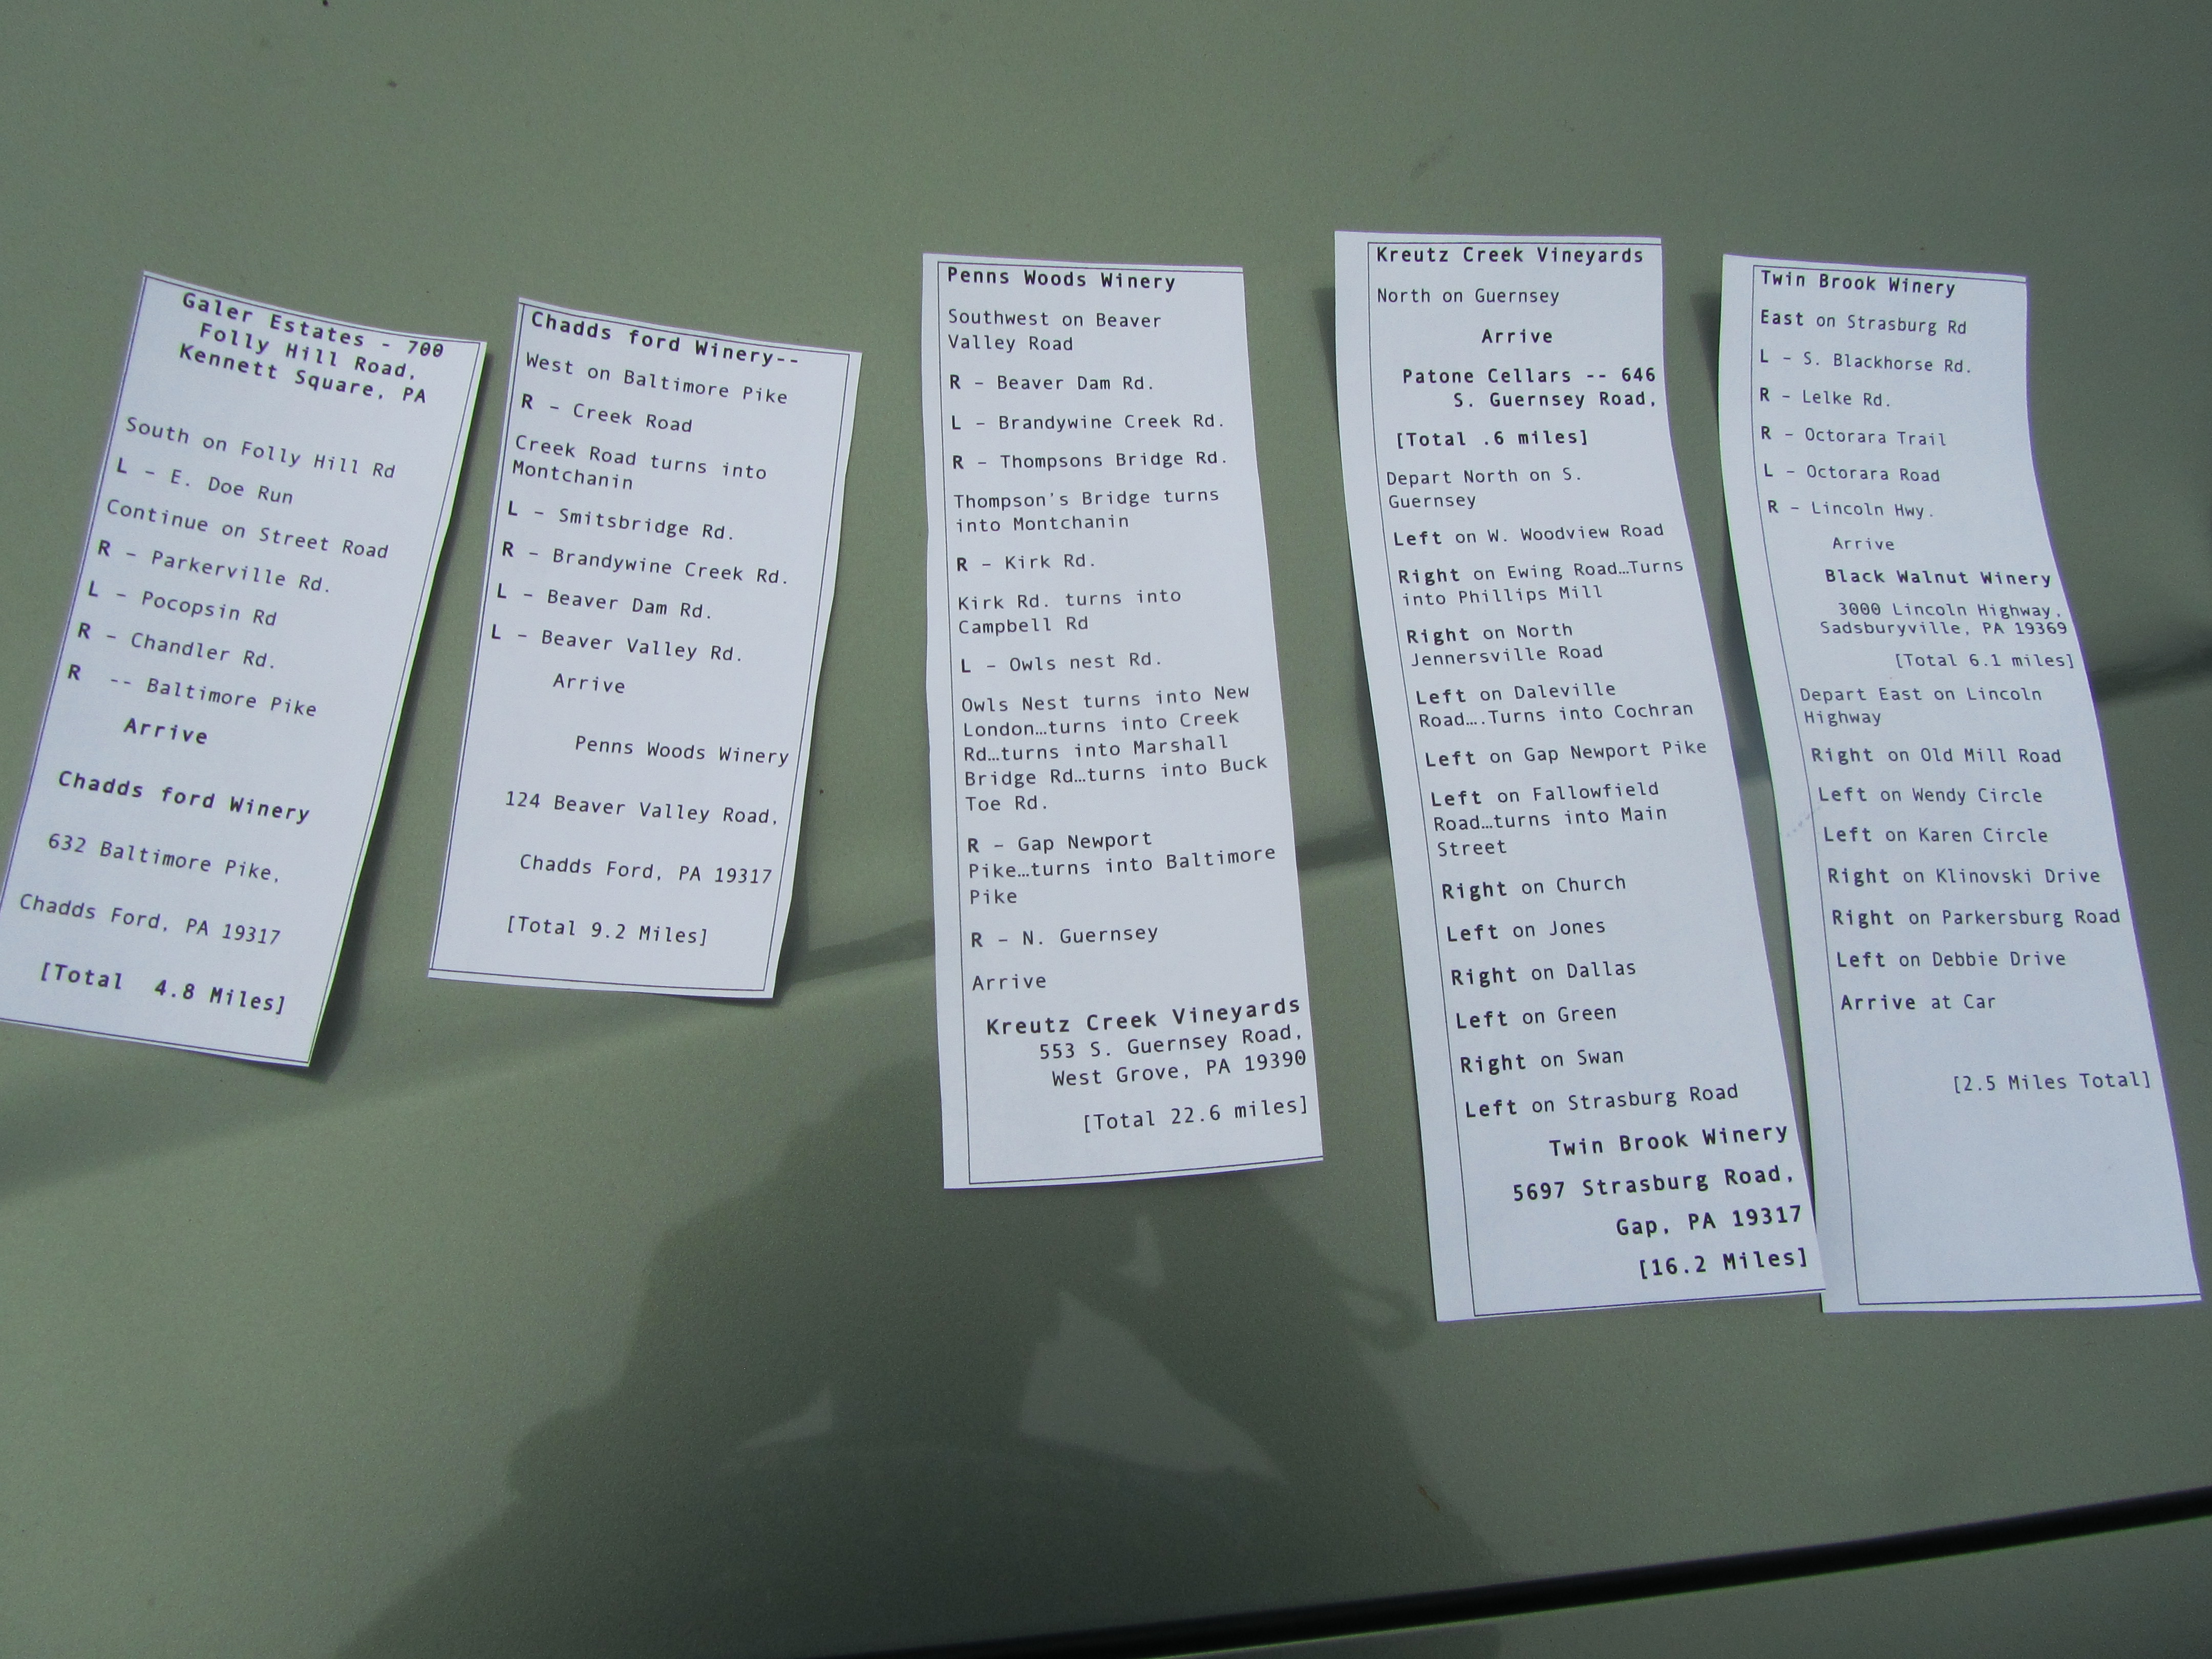 Galer Estates - 700
Folly Hill Road,
Kennett Square, PA
South on Folly Hill Rd
L - E. Doe Run
Continue on Street Road
R - Parkerville Rd.
L - Pocopsin Rd
R - Chandler Rd.
R -- Baltimore Pike
Arrive
Chadds ford Winery
632 Baltimore Pike,
Chadds Ford, PA 19317
[Total 4.8 Miles]
Chadds ford Winery--
West on Baltimore Pike
R - Creek Road
Creek Road turns into
Montchanin
L - Smitsbridge Rd.
R - Brandywine Creek Rd.
L - Beaver Dam Rd.
L - Beaver Valley Rd.
Arrive
Penns Woods Winery
124 Beaver Valley Road,
Chadds Ford, PA 19317
[Total 9.2 Miles]
Penns Woods Winery
Southwest on Beaver
Valley Road
R - Beaver Dam Rd.
L - Brandywine Creek Rd.
R - Thompsons Bridge Rd.
Thompson's Bridge turns
into Montchanin
R - Kirk Rd.
Kirk Rd. turns into
Campbell Rd
L - Owls nest Rd.
Owls Nest turns into New
London…turns into Creek
Rd…turns into Marshall
Bridge Rd…turns into Buck
Toe Rd.
R - Gap Newport
Pike…turns into Baltimore
Pike
R - N. Guernsey
Arrive
Kreutz Creek Vineyards
553 S. Guernsey Road,
West Grove, PA 19390
[Total 22.6 miles]
Kreutz Creek Vineyards
North on Guernsey
Arrive
Patone Cellars -- 646
S. Guernsey Road,
[Total .6 miles]
Depart North on S.
Guernsey
Left on W. Woodview Road
Right on Ewing Road…Turns
into Phillips Mill
Right on North
Jennersville Road
Left on Daleville
Road….Turns into Cochran
Left on Gap Newport Pike
Left on Fallowfield
Road…turns into Main
Street
Right on Church
Left on Jones
Right on Dallas
Left on Green
Right on Swan
Left on Strasburg Road
Twin Brook Winery
5697 Strasburg Road,
Gap, PA 19317
[16.2 Miles]
Twin Brook Winery
East on Strasburg Rd
L - S. Blackhorse Rd.
R - Lelke Rd.
R - Octorara Trail
L - Octorara Road
R - Lincoln Hwy.
Arrive
Black Walnut Winery
3000 Lincoln Highway,
Sadsburyville, PA 19369
[Total 6.1 miles]
Depart East on Lincoln
Highway
Right on Old Mill Road
Left on Wendy Circle
Left on Karen Circle
Right on Klinovski Drive
Right on Parkersburg Road
Left on Debbie Drive
Arrive at Car
[2.5 Miles Total]